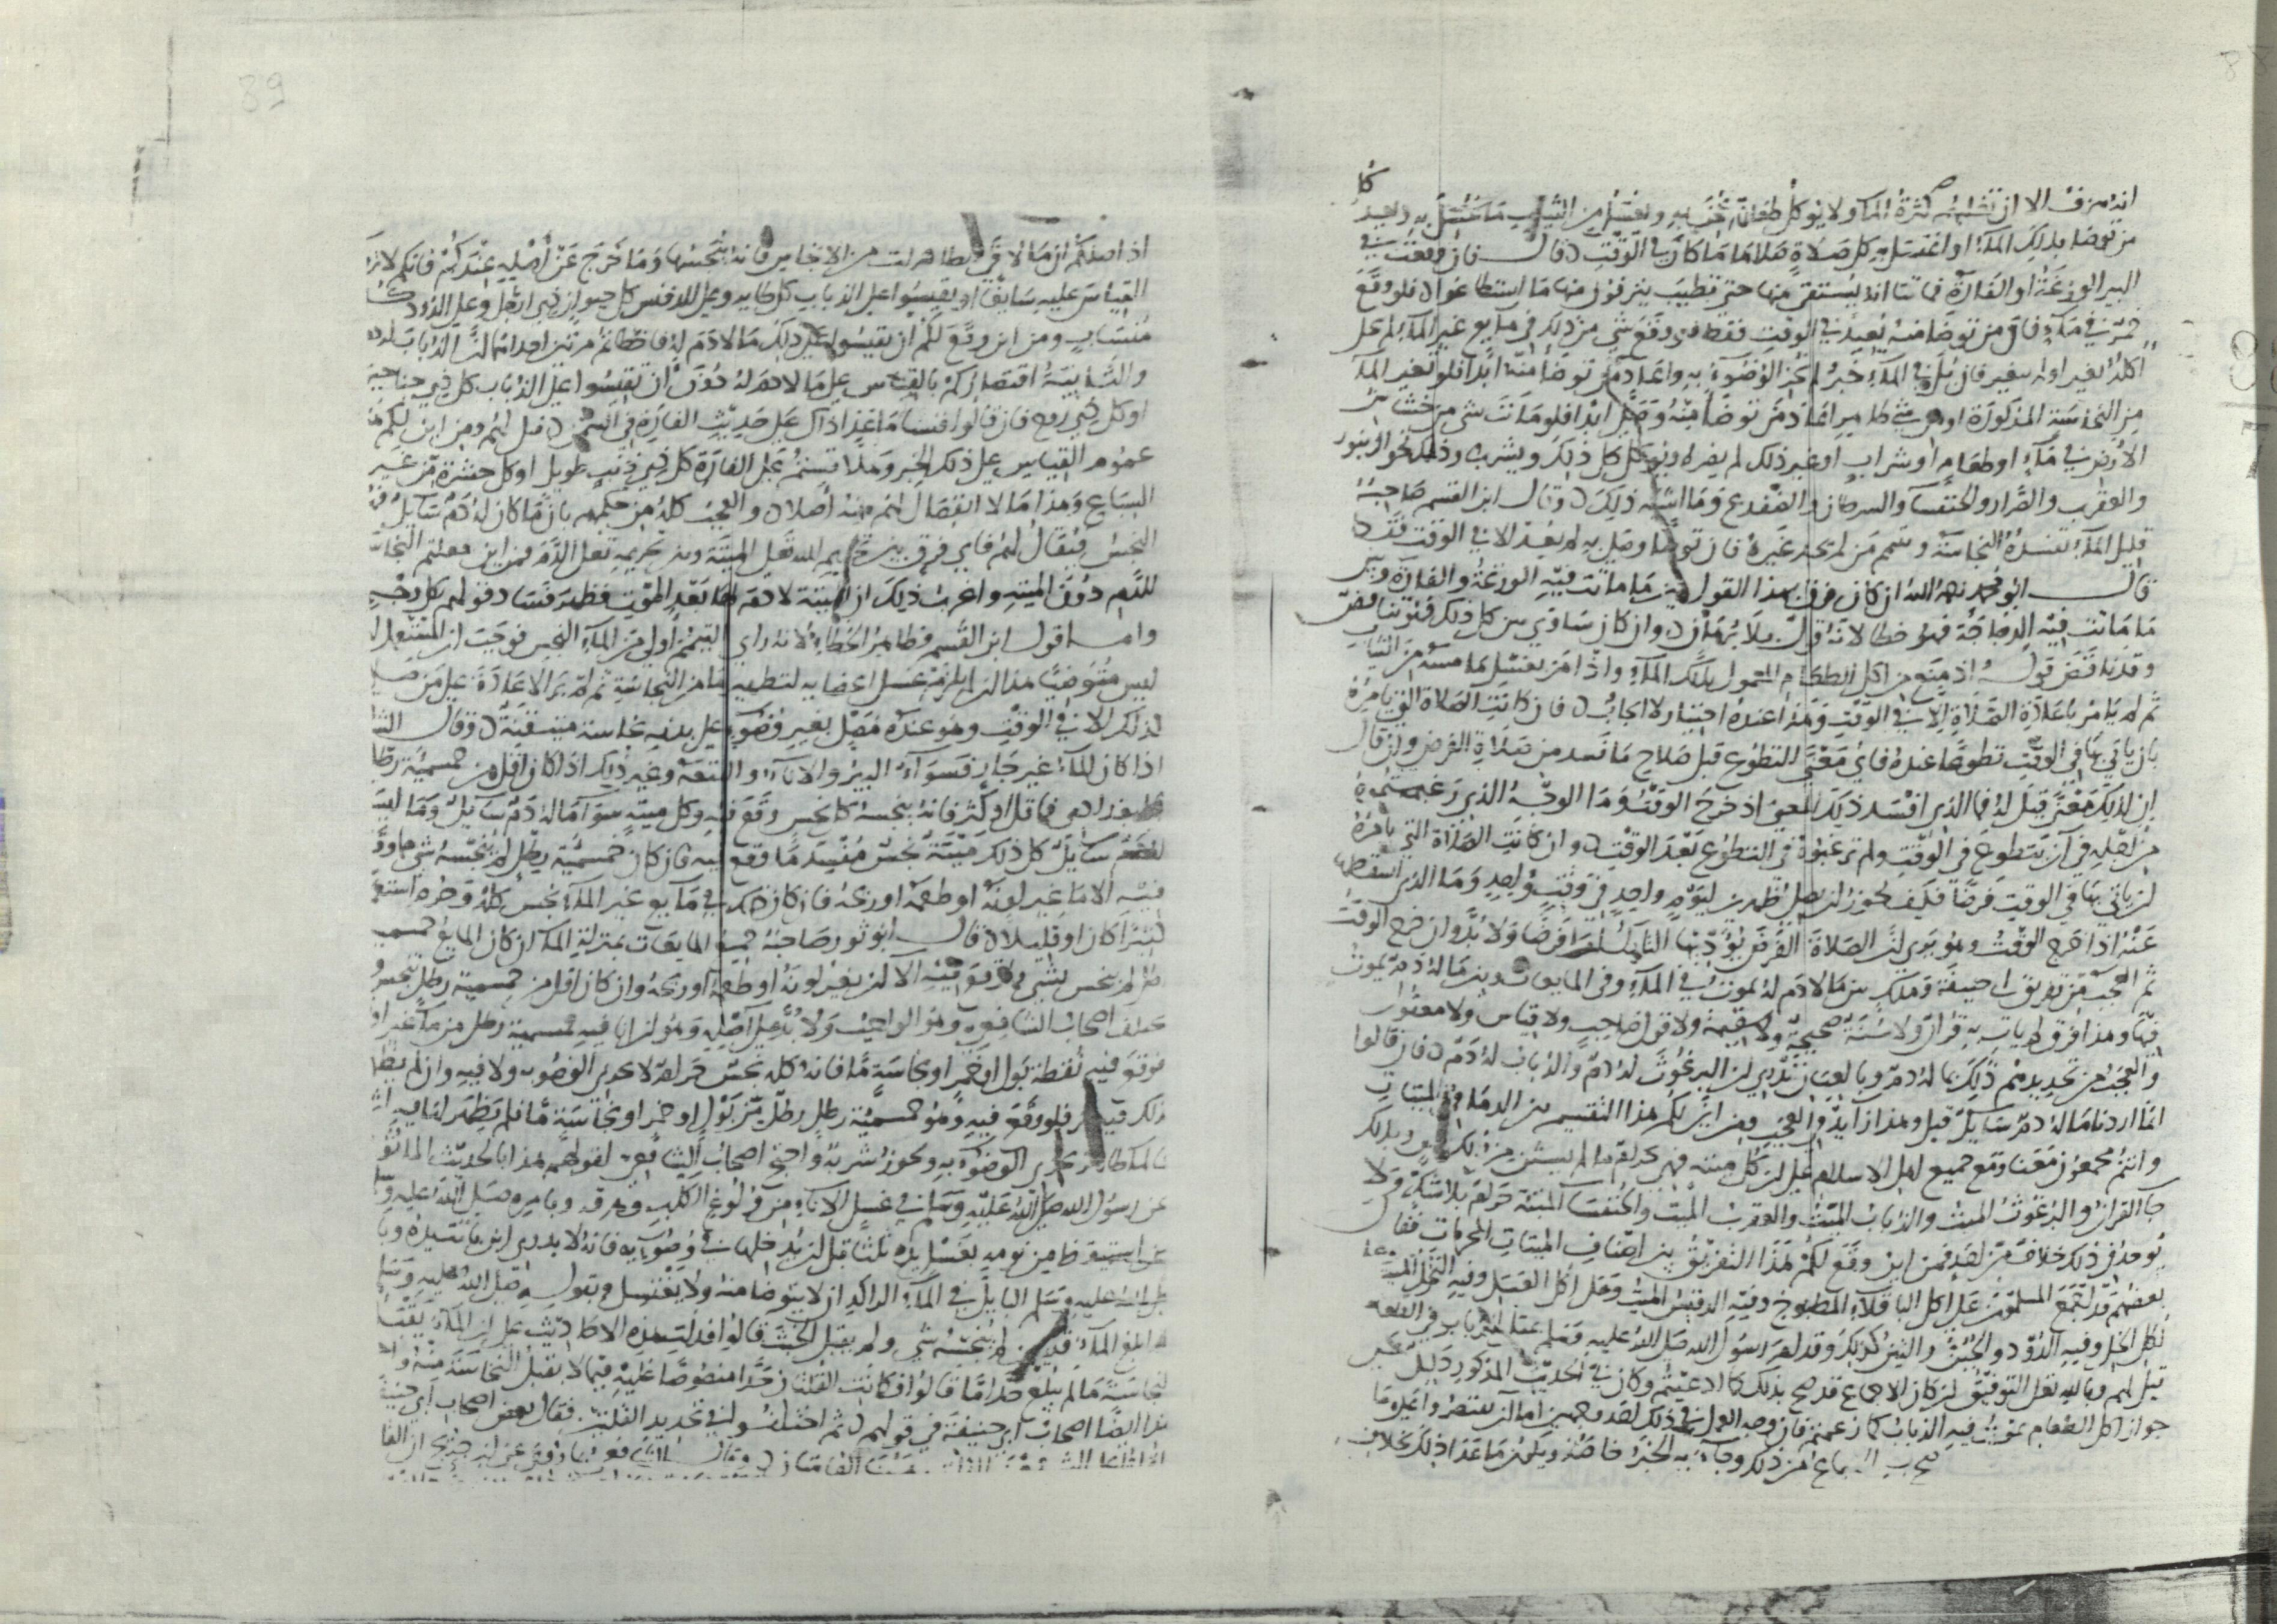 انه مزق الا ان تغلبه كثرة الماء ولا يوكل طعام عجن به ويغسل من الثياب ما غسل به ويعيد كل
من توضا بذلك الماء او اغتسل به كل صلاة صلاها ما كان في الوقت قال فان وقعت في
البير الوزغة او الفارة فماتتا انه يستقى منها حتى تطيب ينزفون منها ما استطاعوا فلو وقع
خمر في ماء فان من توضا منه يعيد في الوقت فقط فلو وقع شي من ذلك في مايع غير الماء لم يحل
اكله تغير او لم يتغير فان بل في الماء خبز لم يجز الوضوء به واعاد من توضا منه ابدا فلو تغير الماء
من النجاسة المذكورة او من شي طاهر اعاد من توضا منه وصلى ابدا فلو مات شي من خشاش
الارض في ماء او طعام او شراب او غير ذلك لم يضره ويوكل كل ذلك ويشرب وذلك نحو الزنبور
والعقرب والصرار والخنفسا والسرطان والضفدع وما اشبه ذلك وقال ابن القسم صاحبه
قليل الماء تفسده النجاسة ويتيمم من لم يجد غيره فان توضا وصلى به لم يعد الا في الوقت فقط
قال ابو محمد رحمه الله ان كان فرق بهذا القول بين ما ماتت فيه الوزغة والفارة وبين
ما ماتت فيه الدجاجة فهو خطا لانه قول بلا برهان وان كان ساوى بين كل ذلك فقد تناقض
وقد تناقض قوله اذ منع من اكل الطعام المعمول بذلك الماء واذ امر بغسل ما مسه من الثياب
ثم لم يامر باعادة الصلاة الا في الوقت وهذا عنده اختيار لا ايجاب فان كانت الصلاة التي يامره
بان ياتي بها في الوقت تطوعا عنده فاي معنى للتطوع قبل صلاح ما فسد من صلاة الفرض وان قال
ان لذلك معنى قيل له فما الذي افسد ذلك المعنى اذ خرج الوقت وما الوجه الذي رغبتموه
من اجله في ان يتطوع في الوقت ولم ترغبوه في التطوع بعد الوقت وان كانت الصلاة التي يامره
ان ياتي بها في الوقت فرضا فكيف يجوز ان يصلي ظهرين ليوم واحد في وقت واحد وما الذي اسقطها
عنه اذا خرج الوقت وهو يرى ان الصلاة الفرض يوديها التارك لها فرضا ولا بد وان خرج الوقت
ثم العجب من تفريق ابي حنيفة ومالك بين ما لا دم له يموت في الماء وفي المايعات وبين ما له دم يموت
فيها وهذا فرق لم يات به قران ولا سنة صحيحة ولا سقيمة ولا قول صاحب ولا قياس ولا معقول
والعجب من تحديدهم ذلك بما له دم وبالعيان ندري ان البرغوث له دم والذباب له دم فان قالوا
انما اردنا ما له دم سايل قيل وهذا زايد في العجب ومن اين لكم هذا التقسيم بين الدماء في الميتات
وانتم مجمعون معنا ومع جميع اهل الاسلام على ان كل ميتة فهي حرام ما لم يستثن من ذلك وبذلك
جا القران والبرغوث الميت والذباب الميت والعقرب الميت والخنفسا الميتة حرام بلا شك ولا
يوجد في ذلك خلاف من احد فمن اين وقع لكم هذا التفريق بين اصناف الميتات المحرمات فقال
بعضهم قد اجمع المسلمون على اكل الباقلاء المطبوخ وفيه الدقش الميت وعلى اكل العسل وفيه النحل الميت
اكل الخل وفيه الدود والجبن والتين كذلك وقد امر رسول الله صلى الله عليه وسلم بمقل الذباب في الطعام
قيل لهم وبالله تعلى التوفيق ان كان الاجماع قد صح بذلك كما ادعيتم وكان في الحديث المذكور دليل على
جواز اكل الطعام يموت فيه الذباب كما زعمتم فان وجه العمل في ذلك احد وجهين اما ان تقتصروا على ما
صح به الاجماع من ذلك وجاء به الخبر خاصة ويكون ما عدا ذلك بخلافه
اذ اصلكم ان ما لاقى الطاهرات من الانجاس فانه ينجسها وما خرج عن اصله عندكم فانكم لا ترون
القياس عليه سايغا او يقيسوا على الذباب كل طاير وعلى الدقش كل حيوان ذي ارجل وعلى الدود كل
منساب ومن اين وقع لكم ان تقيسوا على ذلك ما لا دم له فاخطاتم مرتين احداهما ان الذباب له دم
والثانية اقتصاركم بالقياس على ما لا دم له دون ان تقيسوا على الذباب كل ذي جناحين
او كل ذي روح فان قالوا قسنا ما عدا ذلك على حديث الفارة في السمن قيل لهم ومن اين لكم
عموم القياس على ذلك الخبر وهلا قستم على الفارة كل ذي ذنب طويل او كل حشرة من غير
السباع وهذا ما لا انفصال لهم منه اصلا والعجب كله من حكمهم بان ما كان له دم سايل فهو
النجس فيقال لهم فاي فرق بين تحريم الله تعلى الميتة وبين تحريمه تعلى الدم فمن اين جعلتم النجاسة
للدم دون الميتة واغرب ذلك ان الميتة لا دم لها بعد الموت فظهر فساد قولهم بكل وجه
واما قول ابن القسم فظاهر الخطا لانه راى التيمم اولى من الماء النجس فوجب ان المستعمل له
ليس متوضيا هذا ان لم يلزمه غسل اعضايه لتطهيرها من النجاسة ثم لم ير الاعادة على من صلى
لذلك الا في الوقت وهو عنده مصل بغير وضوء على بدنه نجاسة متيقنة وقال الشافعي
اذا كان الماء غير جار فسواء البير والاناء والبقعة وغير ذلك اذا كان اقل من خمسمئة رطل
بغدادي فما قل او كثر فانه ينجسه كل نجس وقع فيه وكل ميتة سوا ما له دم سايل وما ليس
له دم سايل كل ذلك ميتة نجس مفسد ما وقع فيه فان كان خمسمئة رطل لم ينجسه شي مما وقع
فيه الا ما غير لونه او طعمه او ريحه فان كان ذلك في مايع غير الماء نجس كله وحرم استعماله
كثيرا كان او قليلا قال ابو ثور صاحبه جميع المايعات بمنزلة الماء ان كان المايع خمسمئة
رطل لم ينجس بشي مما وقع فيه الا ان يغير لونه او طعمه او ريحه وان كان اقل من خمسمية رطل تنجس ولم
يختلف اصحاب الشافعي وهو الواجب ولا بد على اصله وهو ان انا فيه خمسمية رطل من ماء غير اوقية
فوقع فيه نقطة بول او خمر او نجاسة ما فانه كله نجس حرام لا يجزى الوضوء ولا فيه وان لم يظهر
لذلك فيه اثر فلو وقع فيه وهو خمسمية رطل رطل من بول او خمر او نجاسة ما فلم يظهر لها فيه اثر
فالماء طاهر يجزى الوضوء به ويجوز شربه واحتج اصحاب الشافعي لقولهم هذا بالحديث الماثور
عن رسول الله صلى الله عليه وسلم في غسل الاناء من ولوغ الكلب وهرقه وبامره صلى الله عليه وسلم
من استيقظ من نومه بغسل يده ثلثا قبل ان يدخلها في وضوئه فانه لا يدري اين باتت يده وبامره
صلى الله عليه وسلم البايل في الماء الراكد ان لا يتوضا منه ولا يغتسل وبقوله صلى الله عليه وسلم
اذا بلغ الماء قلتين لم ينجسه شي ولم يقبل الخبث قالوا فدلت هذه الاحاديث على ان الماء يقبل
النجاسة ما لم يبلغ حدا ما قالوا فكانت القلتان حدا منصوصا عليه فيما لا يقبل النجاسة منه واحتج
بهذا ايضا اصحاب ابي حنيفة في قولهم ثم اختلفوا في تحديد القلتين فقال بعض اصحاب ابي حنيفة